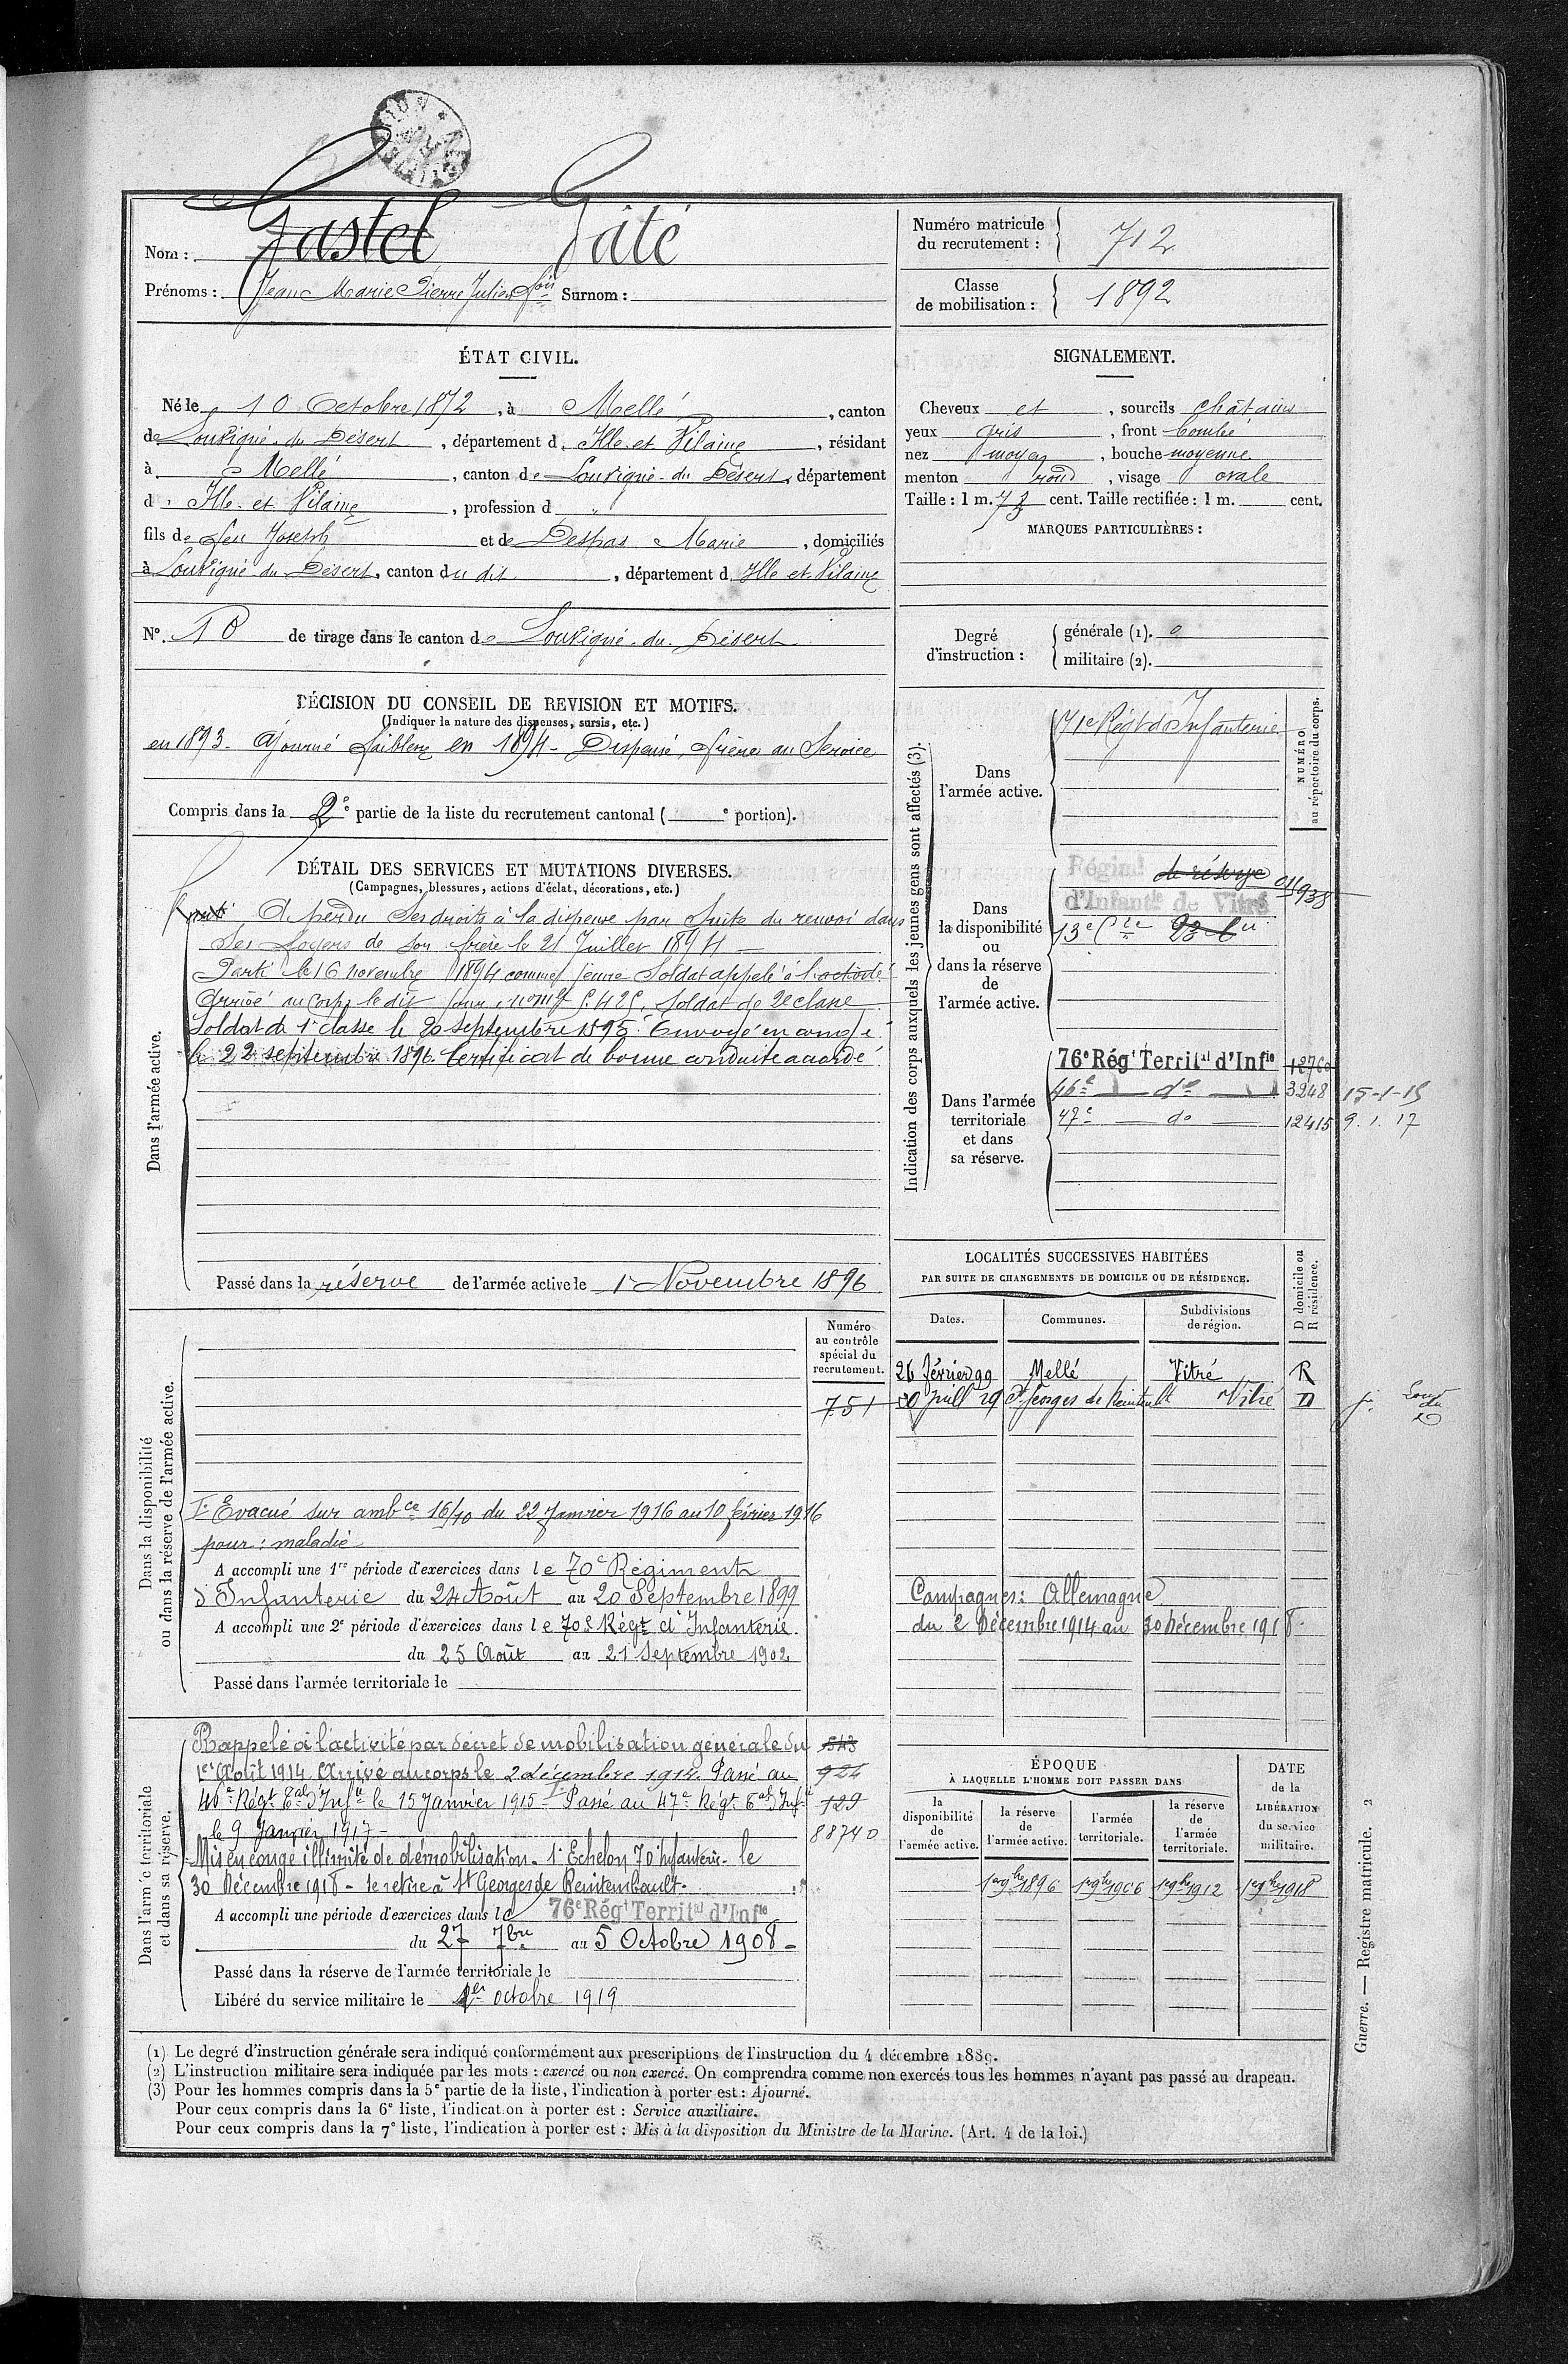 Nom : Gastel Gâté
Prénoms : Jean Marie Pierre Julien fois Surnom :
Numéro matricule du recrutement : 712
Classe de mobilisation : 1892
ÉTAT CIVIL.
Né le 10 Octobre 1872, à Mellé, canton
de Louvigné-du-Désert, département d'Ille-et-Vilaine, résidant
à Mellé, canton de Louvigné-du-Désert, département
d'Ille-et-Vilaine, profession d "
fils de feu Joseph et de Despas Marie, domiciliés
à Louvigné du Désert, canton du dit, département d'Ille et Vilaine
N°. 10 de tirage dans le canton de Louvigné-du-Désert
SIGNALEMENT.
Cheveux et, sourcils châtains
yeux gris, front bombé
nez moyen, bouche moyenne
menton rond, visage ovale
Taille : 1 m. 73 cent. Taille rectifiée : 1 m. cent.
MARQUES PARTICULIÈRES :
Degré d'instruction :
générale (1). 0
militaire (2).
DÉCISION DU CONSEIL DE REVISION ET MOTIFS.
(Indiquer la nature des dispenses, sursis, etc.)
en 1893- Ajourné faiblesse en 1894- Dispensé, frère au Service
Compris dans la 2e partie de la liste du recrutement cantonal ( e portion).
DÉTAIL DES SERVICES ET MUTATIONS DIVERSES.
(Campagnes, blessures, actions d'éclat, décorations, etc.)
Dans l'armée active.
A perdu ses droits à la dispense par suite du renvoi dans
ses foyers de son frère le 21 Juillet 1894
Parti le 16 novembre 1894 comme jeune soldat appelé à l'activité
Arrivé au corps le dit jour, soldat de 2e classe
Soldat de 1e classe le 20 septembre 1895. Envoyé en congé
le 22 septembre 1896. Certificat de bonne conduite accordé
Passé dans la réserve de l'armée active le 1er Novembre 1896
Indication des corps auxquels les jeunes gens sont affectés (3).
NUMÉRO au répertoire du corps.
Dans l'armée active.
71e Regt d'Infanterie
Dans la disponibilité ou dans la réserve de l'armée active.
Régimt de réserve
d'Infantie de Vitré
13e Cie 23e Cie
Dans l'armée territoriale et dans sa réserve.
76e Régt Territal d'Infie
46e do 3248 15-1-15
47e do 12415 9.1.17
LOCALITÉS SUCCESSIVES HABITÉES
PAR SUITE DE CHANGEMENTS DE DOMICILE OU DE RÉSIDENCE.
Dates. Communes. Subdivisions de région. D domicile ou R résidence.
26 février 99 Mellé Vitré R
Vitré D
Campagnes : Allemagne
du 2 Décembre 1914 au 30 Décembre 1918
Dans la disponibilité ou dans la réserve de l'armée active.
Numéro au contrôle spécial du recrutement.
751
Evacué sur ambce 16/10 du 22 Janvier 1916 au 10 février 1916
pour : maladie
A accompli une 1re période d'exercices dans le 70e Régiment
d'Infanterie du 24 Août au 20 Septembre 1899
A accompli une 2e période d'exercices dans le 70e Régt d'Infanterie
du 25 Août au 21 Septembre 1902
Passé dans l'armée territoriale le
Dans l'armée territoriale et dans sa réserve.
Rappelé à l'activité par décret de mobilisation générale du 543
1er Août 1914. Arrivé au corps le 2 décembre 1914. Passé au 924
46e Régt Tal d'Infie le 15 Janvier 1915- Passé au 47e Régt Tal d'Infie 129
le 9 Janvier 1917- 88740
Mis en congé illimité de démobilisation. 1e Echelon 70 Infanterie le
30 Décembre 1918- se retire à St Georges de Reintembault-
A accompli une période d'exercices dans le 76e Régt Territal d'Infie
du 27 7bre au 5 Octobre 1908-
Passé dans la réserve de l'armée territoriale le
Libéré du service militaire le 1er octobre 1919
ÉPOQUE
À LAQUELLE L'HOMME DOIT PASSER DANS
la disponibilité de l'armée active. la réserve de l'armée active. l'armée territoriale. la réserve de l'armée territoriale. DATE de la LIBÉRATION du service militaire.
1er 9bre 1896 1er 9bre 1906 1er 9bre 1912 1er 9bre 1918
(1) Le degré d'instruction générale sera indiqué conformément aux prescriptions de l'instruction du 4 décembre 1889.
(2) L'instruction militaire sera indiquée par les mots : exercé ou non exercé. On comprendra comme non exercés tous les hommes n'ayant pas passé au drapeau.
(3) Pour les hommes compris dans la 5e partie de la liste, l'indication à porter est : Ajourné.
Pour ceux compris dans la 6e liste, l'indication à porter est : Service auxiliaire.
Pour ceux compris dans la 7e liste, l'indication à porter est : Mis à la disposition du Ministre de la Marine. (Art. 4 de la loi.)
Guerre. — Registre matricule. 2